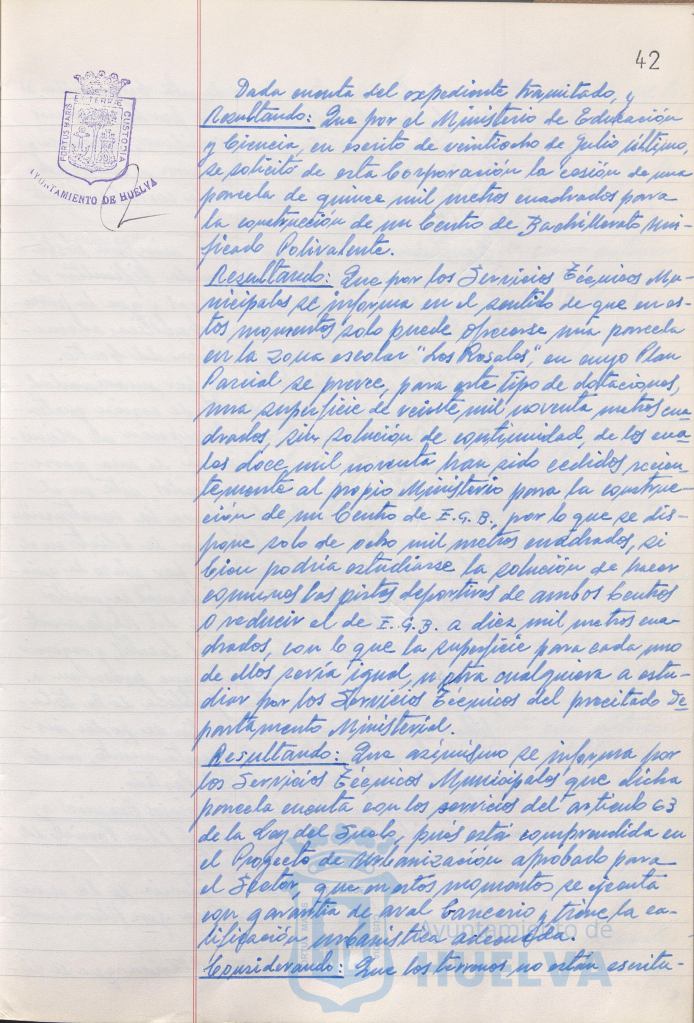 42
PORTUS MARIS
ET TERRÆ
CUSTODIA
AYUNTAMIENTO DE HUELVA
Dada cuenta del expediente tramitado, y
Resultando: Que por el Ministerio de Educación
y Ciencia, en escrito de veintiocho de Julio último,
se solicitó de esta Corporación la cesión de una
parcela de quince mil metros cuadrados para
la construcción de un Centro de Bachillerato Uni-
ficado Polivalente.
Resultando: Que por los Servicios Técnicos Mu-
nicipales se informa en el sentido de que en es-
tos momentos solo puede ofrecerse una parcela
en la zona escolar "Los Rosales", en cuyo Plan
Parcial se prevee, para este tipo de dotaciones,
una superficie de veinte mil noventa metros cua-
drados, sin solución de continuidad, de los cua-
les doce mil noventa han sido cedidos recien-
temente al propio Ministerio para la construc-
ción de un Centro de E.G.B., por lo que se dis-
pone solo de ocho mil metros cuadrados, si
bien podría estudiarse la solución de hacer
comunes las pistas deportivas de ambos Centros
o reducir el de E.G.B. a diez mil metros cua-
drados, con lo que la superficie para cada uno
de ellos sería igual, u otra cualquiera a estu-
diar por los Servicios Técnicos del precitado De-
partamento Ministerial.
Resultando: Que asimismo se informa por
los Servicios Técnicos Municipales que dicha
parcela cuenta con los servicios del artículo 63
de la Ley del Suelo, pués está comprendida en
el Proyecto de Urbanización aprobado para
el Sector, que en estos momentos se ejecuta
con garantía de aval bancario y tiene la ca-
lificación urbanística adecuada.
Considerando: Que los terrenos no están escritu-
Ayuntamiento de
HUELVA